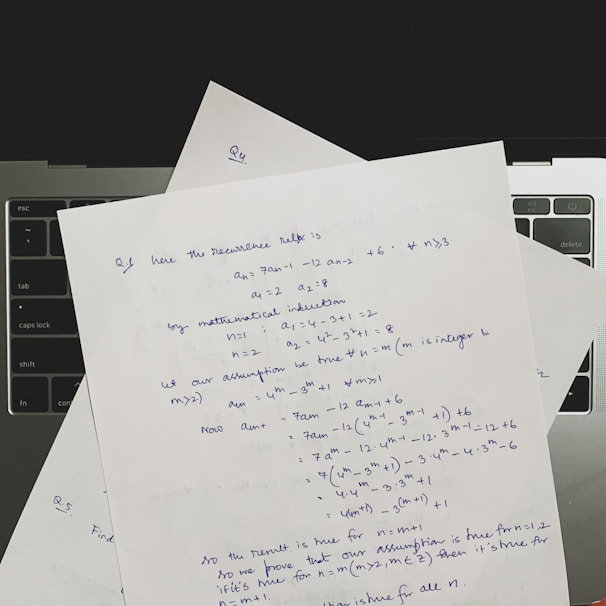 Q4
Q.1 here the recurrence relx is
an = 7an-1 - 12 an-2 + 6 . ∀ n≥3
a1 = 2 a2 = 8
by mathematical induction
n=1 ; a1 = 4 - 3 + 1 = 2
n=2 a2 = 4² - 3² + 1 = 8
let our assumption be true ∀ n = m (m is integer &
m>2) am = 4^m - 3^m + 1 ∀ m≥1
Now am+ = 7am - 12 am-1 + 6
= 7am - 12(4^m-1 - 3^m-1 + 1) + 6
= 7a^m - 12.4^m-1 - 12.3^m-1 - 12 + 6
= 7(4^m - 3^m + 1) - 3.4^m - 4.3^m - 6
= 4.4^m - 3.3^m + 1
= 4(m+1) - 3^(m+1) + 1
so the result is true for n = m+1
so we prove that our assumption is true for n=1,2
if it's true for n=m (m>2, m∈Z) then it's true for
n=m+1.
is true for all n.
Q.5
Find
esc
tab
caps lock
shift
fn
delete